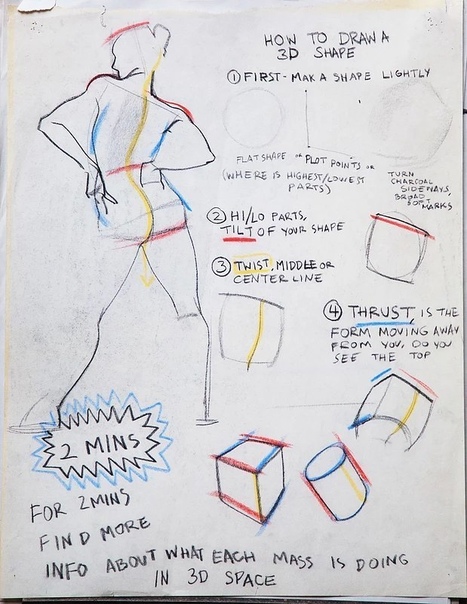 HOW TO DRAW A
3D SHAPE
① FIRST - MAK A SHAPE LIGHTLY
FLAT SHAPE OR PLOT POINTS OR
(WHERE IS HIGHEST/LOWEST
PARTS)
TURN
CHARCOAL
SIDEWAYS,
BROAD
SOFT
MARKS
② HI/LO PARTS,
TILT OF YOUR SHAPE
③ TWIST, MIDDLE OR
CENTER LINE
④ THRUST, IS THE
FORM MOVING AWAY
FROM YOU, DO YOU
SEE THE TOP
2 MINS
FOR 2 MINS
FIND MORE
INFO ABOUT WHAT EACH MASS IS DOING
IN 3D SPACE